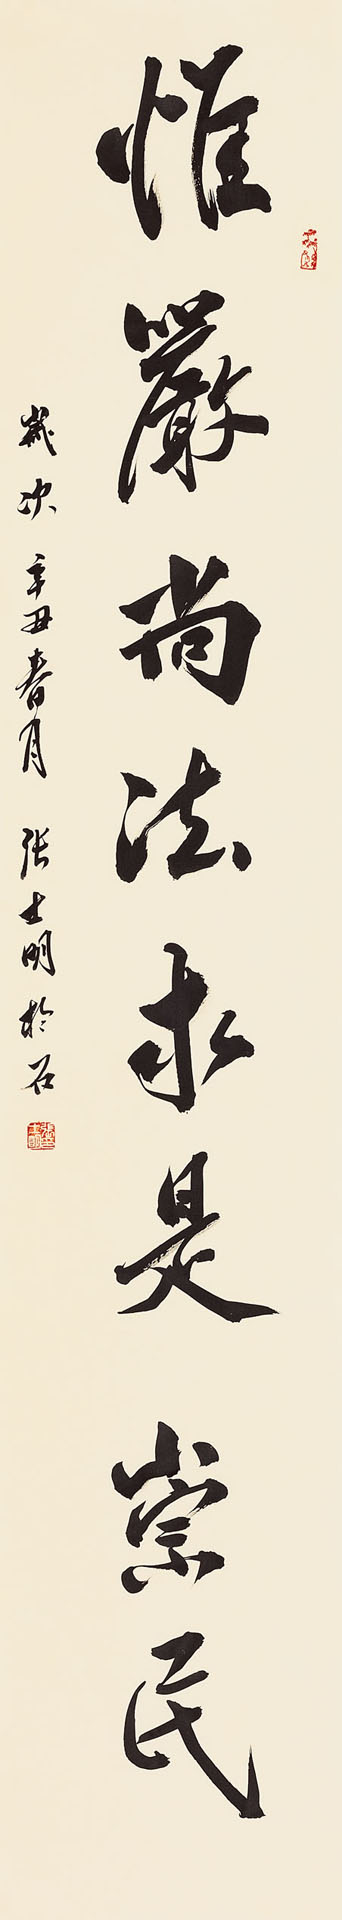 惟嚴尚法求是崇民
歲次辛丑春月 張士明於石